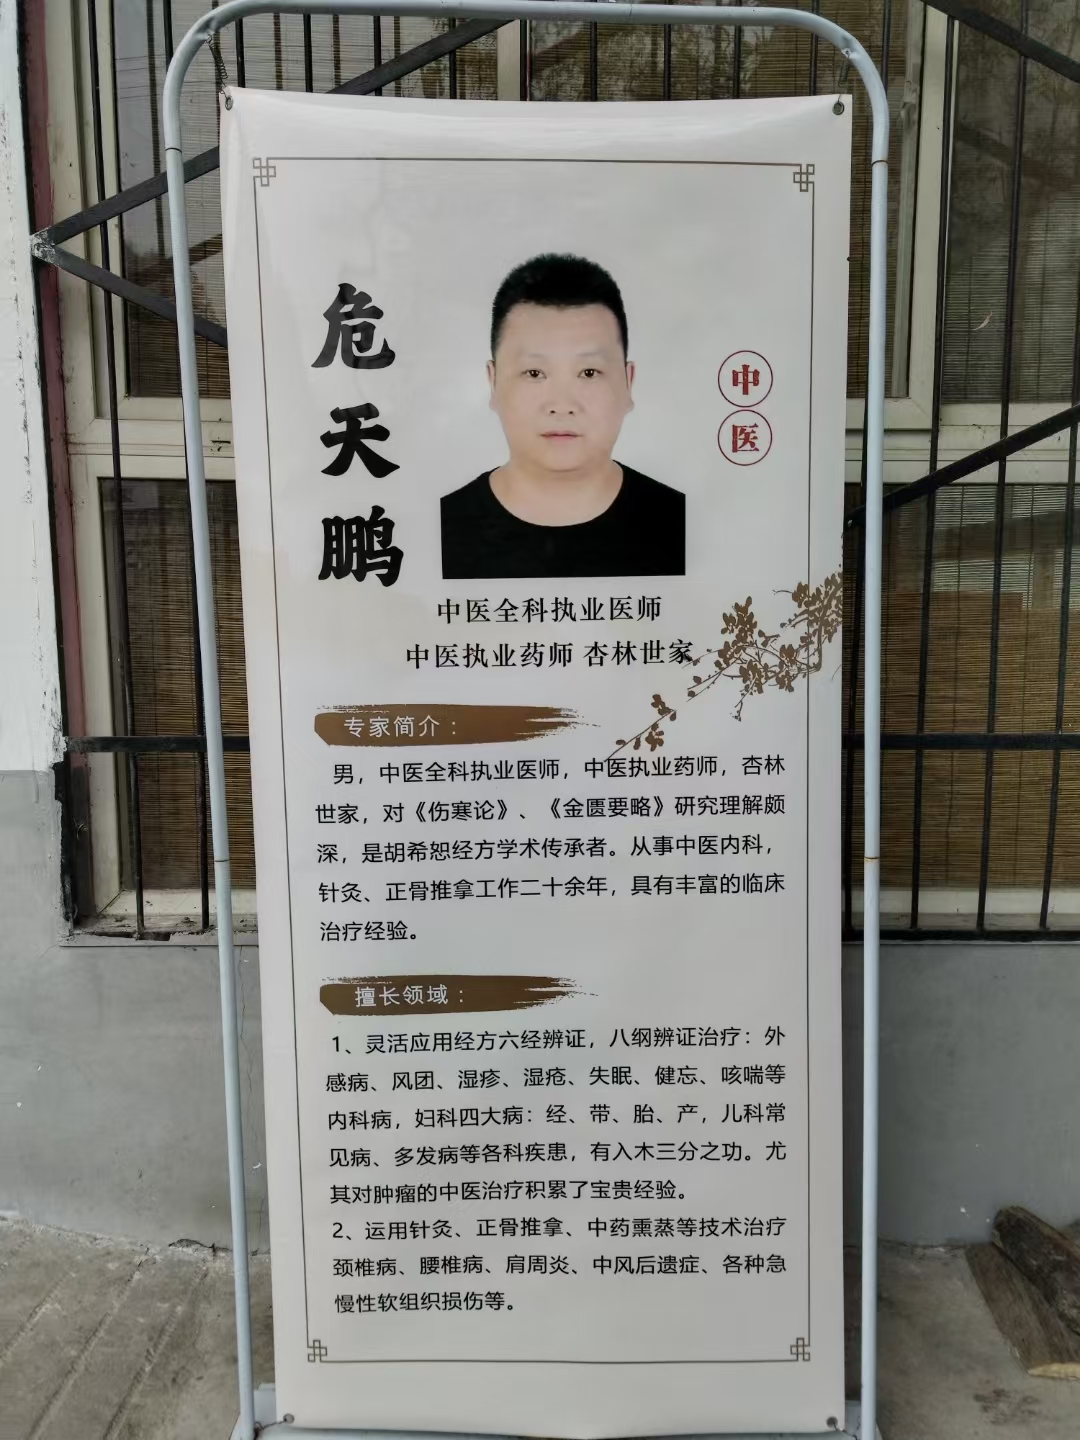 危天鹏
中
医
中医全科执业医师
中医执业药师 杏林世家
专家简介：
男，中医全科执业医师，中医执业药师，杏林
世家，对《伤寒论》、《金匮要略》研究理解颇
深，是胡希恕经方学术传承者。从事中医内科，
针灸、正骨推拿工作二十余年，具有丰富的临床
治疗经验。
擅长领域：
1、灵活应用经方六经辨证，八纲辨证治疗：外
感病、风团、湿疹、湿疮、失眠、健忘、咳喘等
内科病，妇科四大病：经、带、胎、产，儿科常
见病、多发病等各科疾患，有入木三分之功。尤
其对肿瘤的中医治疗积累了宝贵经验。
2、运用针灸、正骨推拿、中药熏蒸等技术治疗
颈椎病、腰椎病、肩周炎、中风后遗症、各种急
慢性软组织损伤等。